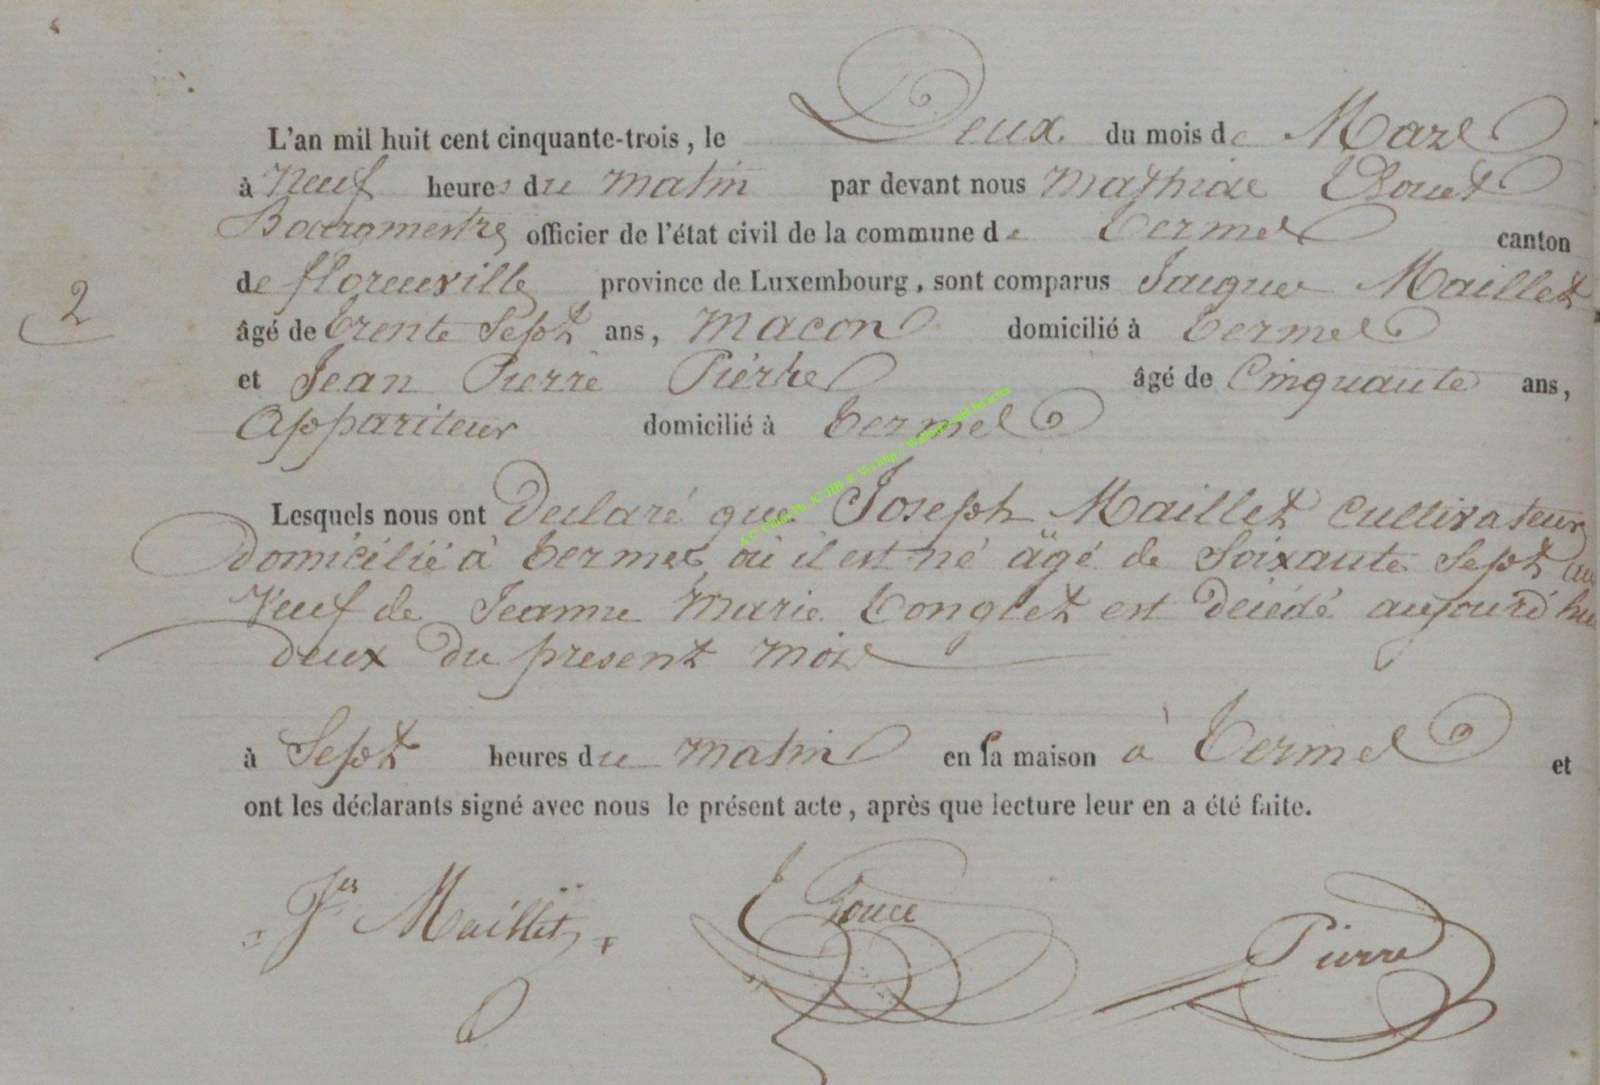 L'an mil huit cent cinquante-trois, le Deux du mois de Mars
à neuf heures du matin par devant nous Mathias
Bourgmestre officier de l'état civil de la commune de termes canton
de florenville province de Luxembourg, sont comparus Jacques Maillet
âgé de trente Sept ans, macon domicilié à termes
et Jean Pierre Pierre âgé de Cinquante ans,
Appariteur domicilié à termes
2
Lesquels nous ont Declaré que Joseph Maillet Cultivateur
domicilié à termes où il est né âgé de Soixante Sept ans
Veuf de Jeanne Marie tonglet est décédé aujourd'hui
deux du present mois
à Sept heures du matin en sa maison à termes et
ont les déclarants signé avec nous le présent acte, après que lecture leur en a été faite.
Jes Maillet Pierre